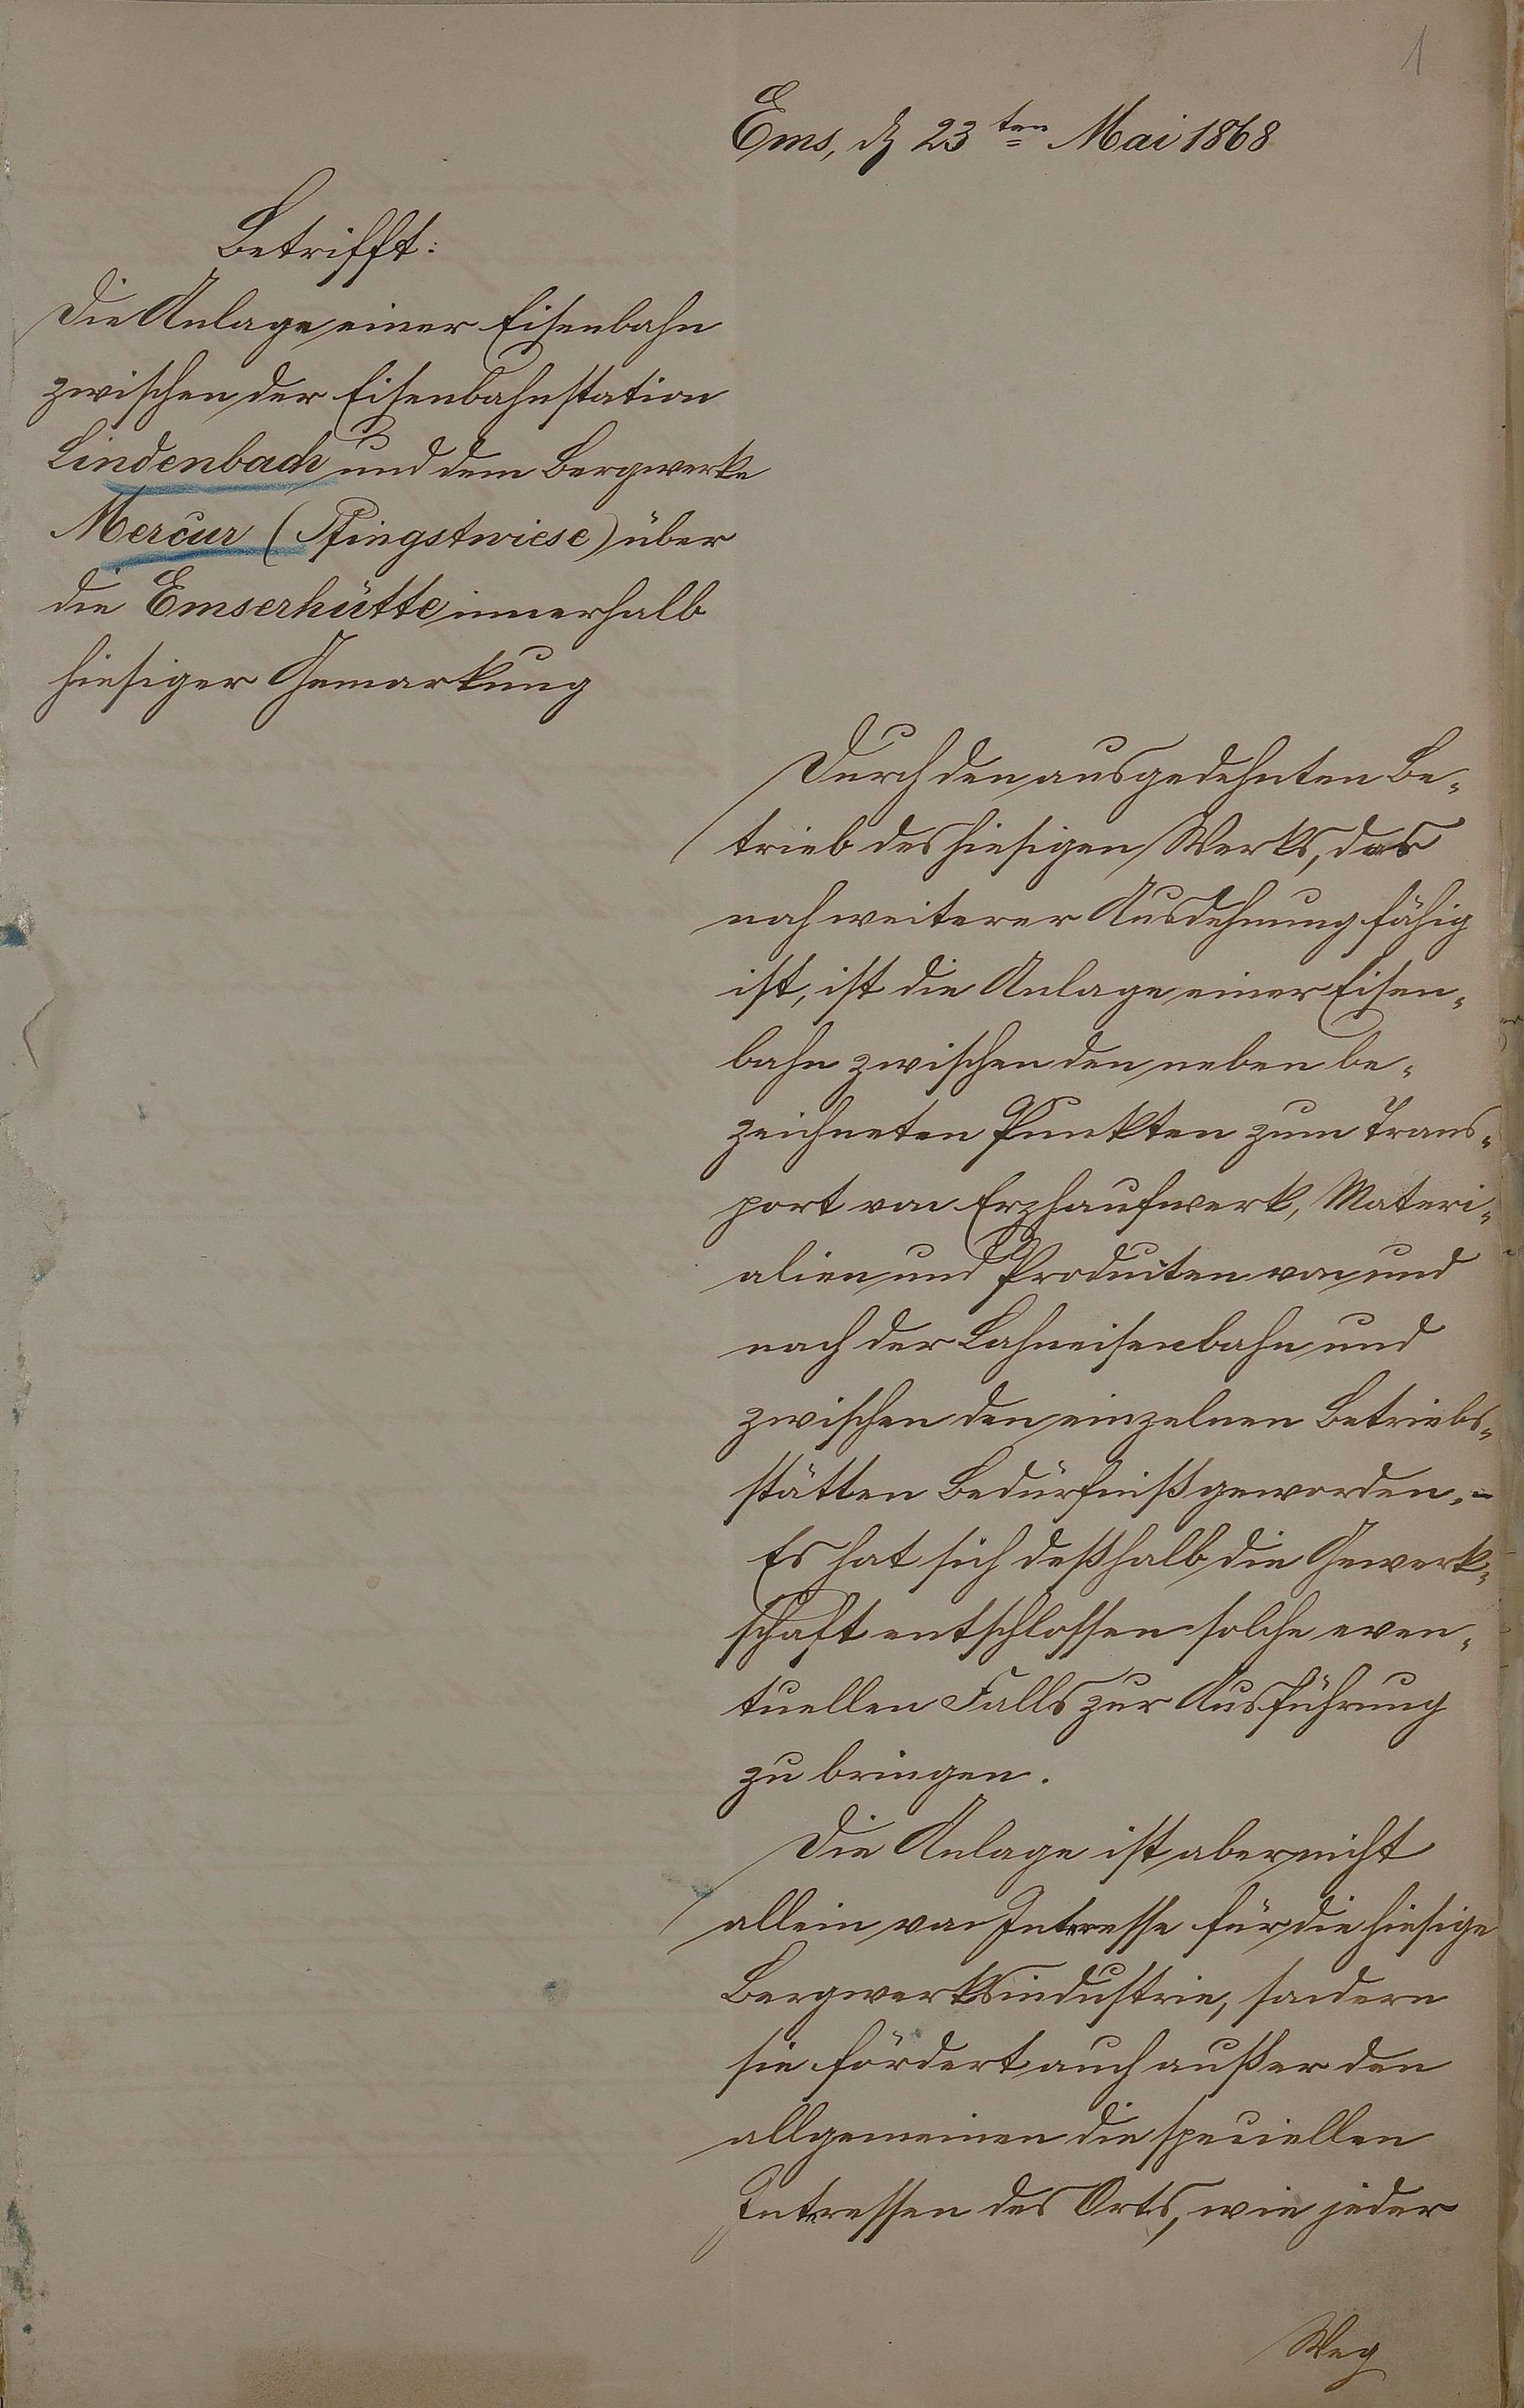 1
Ems, d 23ten Mai 1868
Betrifft:
Die Anlage einer Eisenbahn
zwischen der Eisenbahnstation
Lindenbach und dem Bergwerke
Mercur (Pfingstwiese) über
die Emserhütte innerhalb
hiesiger Gemarkung
Durch den ausgedehnten Be-
trieb des hiesigen Werks, das
noch weiterer Ausdehnung fähig
ist, ist die Anlage einer Eisen-
bahn zwischen den neben be-
zeichneten Punkten zum Trans-
port von Erzhaufwerk, Materi-
alien und Producten von und
nach der Lahneisenbahn und
zwischen den einzelnen Betriebs-
stätten Bedürfniß geworden. -
Es hat sich deßhalb die Gewerk-
schaft entschlossen solche even-
tuellen Falls zur Ausführung
zu bringen.
Die Anlage ist aber nicht
allein von Interesse für die hiesige
Bergwerksindustrie, sondern
sie fördert auch außer den
allgemeinen die speciellen
Interessen des Orts, wie jeder
Weg